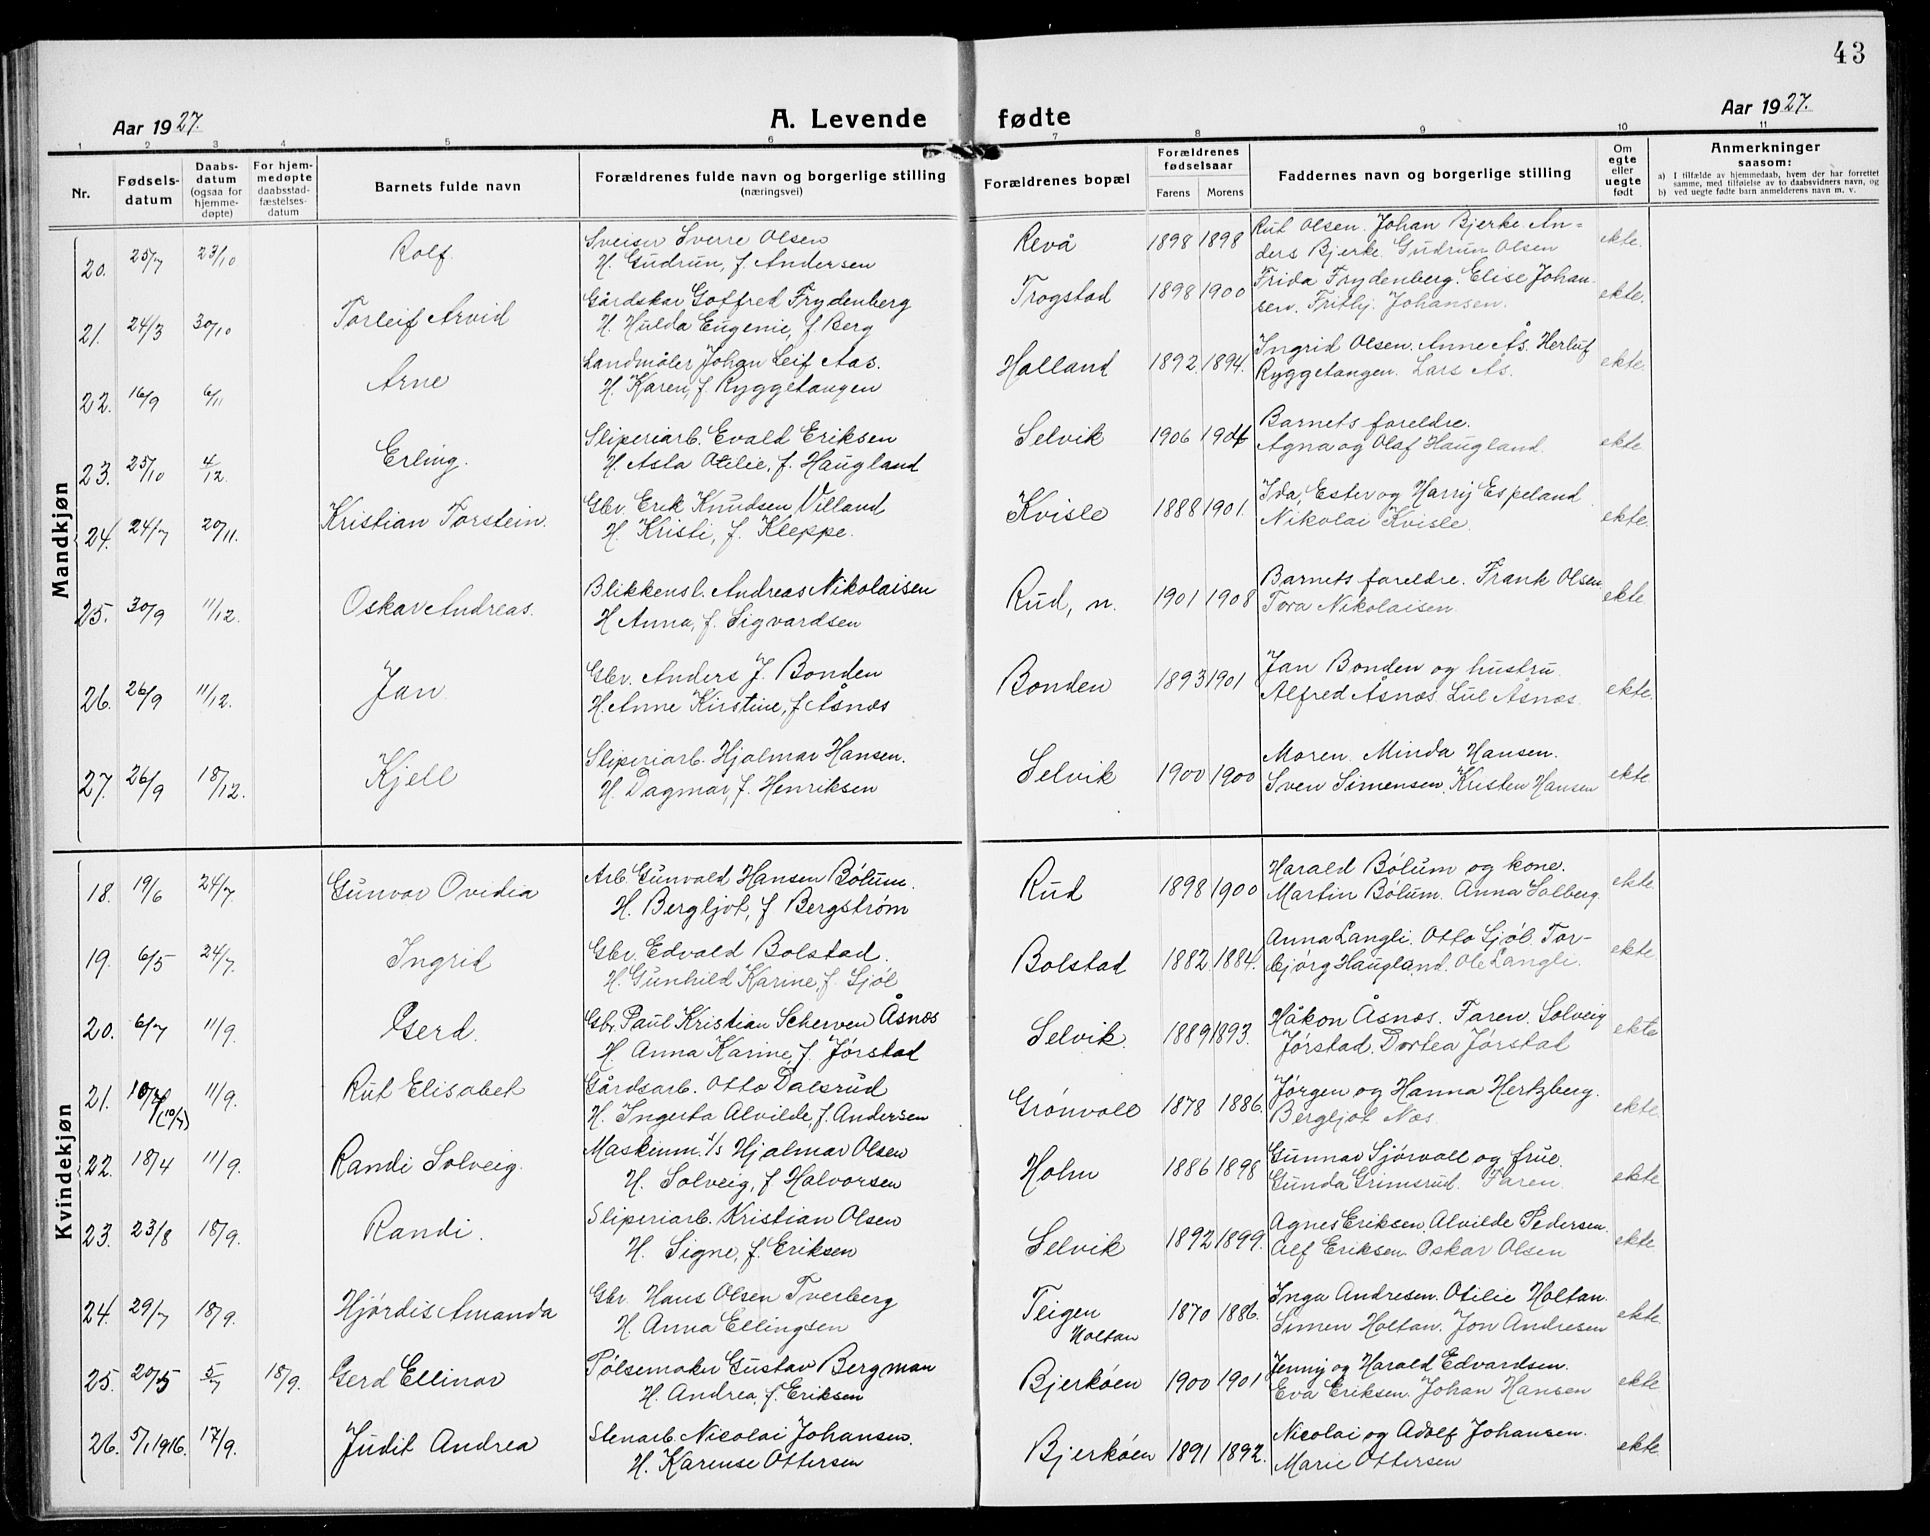 43
Aar 1927.
A. Levende fødte
Aar 1927.
1 2 3 4 5 6 7 8 9 10 11
Nr.
Fødsels-
datum
Daabs-
datum
(ogsaa for
hjemme-
døpte)
For hjem-
medøpte
daabsstad-
fæstelses-
datum
Barnets fulde navn
Forældrenes fulde navn og borgerlige stilling
(næringsvei)
Forældrenes bopæl
Forældrenes
fødselsaar
Farens Morens
Faddernes navn og borgerlige stilling
Om
egte
eller
uegte
født
Anmerkninger
saasom:
a) I tilfælde av hjemmedaab, hvem der har forrettet
samme, med tilføielse av to daabsvidners navn, og
b) ved uegte fødte barn anmelderens navn m. v.
Mandkjøn
20. 25/7 23/10 Rolf. Sveiser Sverre Olsen Revå 1898 1898 Rut Olsen. Johan Bjerke. An- ekte.
H. Gudrun, f. Andersen ders Bjerke. Gudrun Olsen
21. 24/3 30/10 Torleif Arvid Gårdskar Gotfred Frydenberg Trogstad 1898 1900 Frida Frydenberg. Elise Johan- ekte.
H. Hulda Eugenie, f. Berg sen. Frithj. Johansen.
22. 16/9 6/11 Arne Landmåler Johan Leif Aas. Holland 1892 1894. Ingrid Olsen. Anne Ås. Herluf ekte.
H. Karen, f. Ryggetangen Ryggetangen. Lars Ås.
23. 25/10 4/12. Erling. Sliperiarb. Evald Eriksen Selvik 1906 1904 Barnets foreldre. ekte
H. Asla Otilie, f. Haugland Agna og Olaf Haugland.
24. 24/7 20/11. Kristian Torstein. Gbr. Erik Knudsen Villand Kvisle 1888 1901. Ida, Ester og Harry Espeland ekte.
H. Kristi, f. Kleppe. Nikolai Kvisle.
25. 30/9 11/12. Oskar Andreas. Blikkensl. Andreas Nikolaisen Rud, n. 1901 1908 Barnets foreldre. Frank Olsen ekte
H Anna, f. Sigvardsen Tora Nikolaisen.
26. 26/9 11/12. Jan. Gbr. Anders J. Bonden Bonden 1893 1901 Jan Bonden og hustru ekte.
H. Anne Kirstine, f. Åsnæs Alfred Åsnæs. Lul Åsnæs.
27. 26/9 18/12. Kjell Sliperiarb. Hjalmar Hansen. Selvik 1900 1900 Moren. Minda Hansen. ekte.
H. Dagmar, f. Henriksen Sven Simensen. Kristen Hansen
Kvindekjøn
18. 19/6 24/7. Gunvor Ovidia Arb. Gunvald Hansen Bølum. Rud 1898 1900 Harald Bølum og kone. ekte.
H. Bergljot, f Bergstrøm Martin Bølum. Anna Solberg.
19. 6/5 24/7. Ingrid Gbr. Edvald Bolstad. Bolstad 1882 1884. Anna Langli. Otto Sjøl. Tor- ekte.
H. Gunhild Karine, f. Sjøl bjørg Haugland. Ole Langli.
20. 6/7 11/9. Gerd. Gbr. Paul Kristian Scherven Åsnæs Selvik. 1889 1893. Håkon Åsnæs. Faren. Solveig ekte
H. Anna Karine, f. Jørstad Jørstad. Dortea Jørstad
21. (10/7) 11/9. Rut Elisabet Gårdsarb. Otto Dalsrud Grønvold 1878 1886. Jørgen og Hanna Hertzberg. ekte.
H. Ingerta Alvilde, f. Andersen Bergljot Næs.
22. 18/4 11/9. Randi Solveig. Maskinm. Hjalmar Olsen Holm 1886 1898 Gunnar Sjørvoll og frue. ekte.
H. Solveig, f Halvorsen Gunda Grimsrud. Faren.
23. 23/8 18/9. Randi. Sliperiarb. Kristian Olsen Selvik 1892 1899. Agnes Eriksen. Alvilde Pedersen. ekte
H. Signe, f. Eriksen Alf Eriksen. Oskar Olsen
24. 29/7 18/9. Hjørdis Amanda Gbr. Hans Olsen Tverberg Teigen 1870 1886. Inga Andresen. Otilie Holtan. ekte.
H. Anna Ellingsen Holtan Simen Holtan. Jon Andresen
25. 20/5 5/7 18/9. Gerd Ellinor Pølsemaker Gustav Bergman Bjerkøen 1900 1901 Jenny og Harald Edvardsen. ekte
H. Andrea, f. Eriksen Eva Eriksen. Johan Hansen
26. 5/1 1916. 17/9. Judit Andrea Stenarb. Nicolai Johansen. Bjerkøen 1891 1892. Nicolai og Adolf Johansen. ekte.
H. Karense Ottersen Marie Ottersen